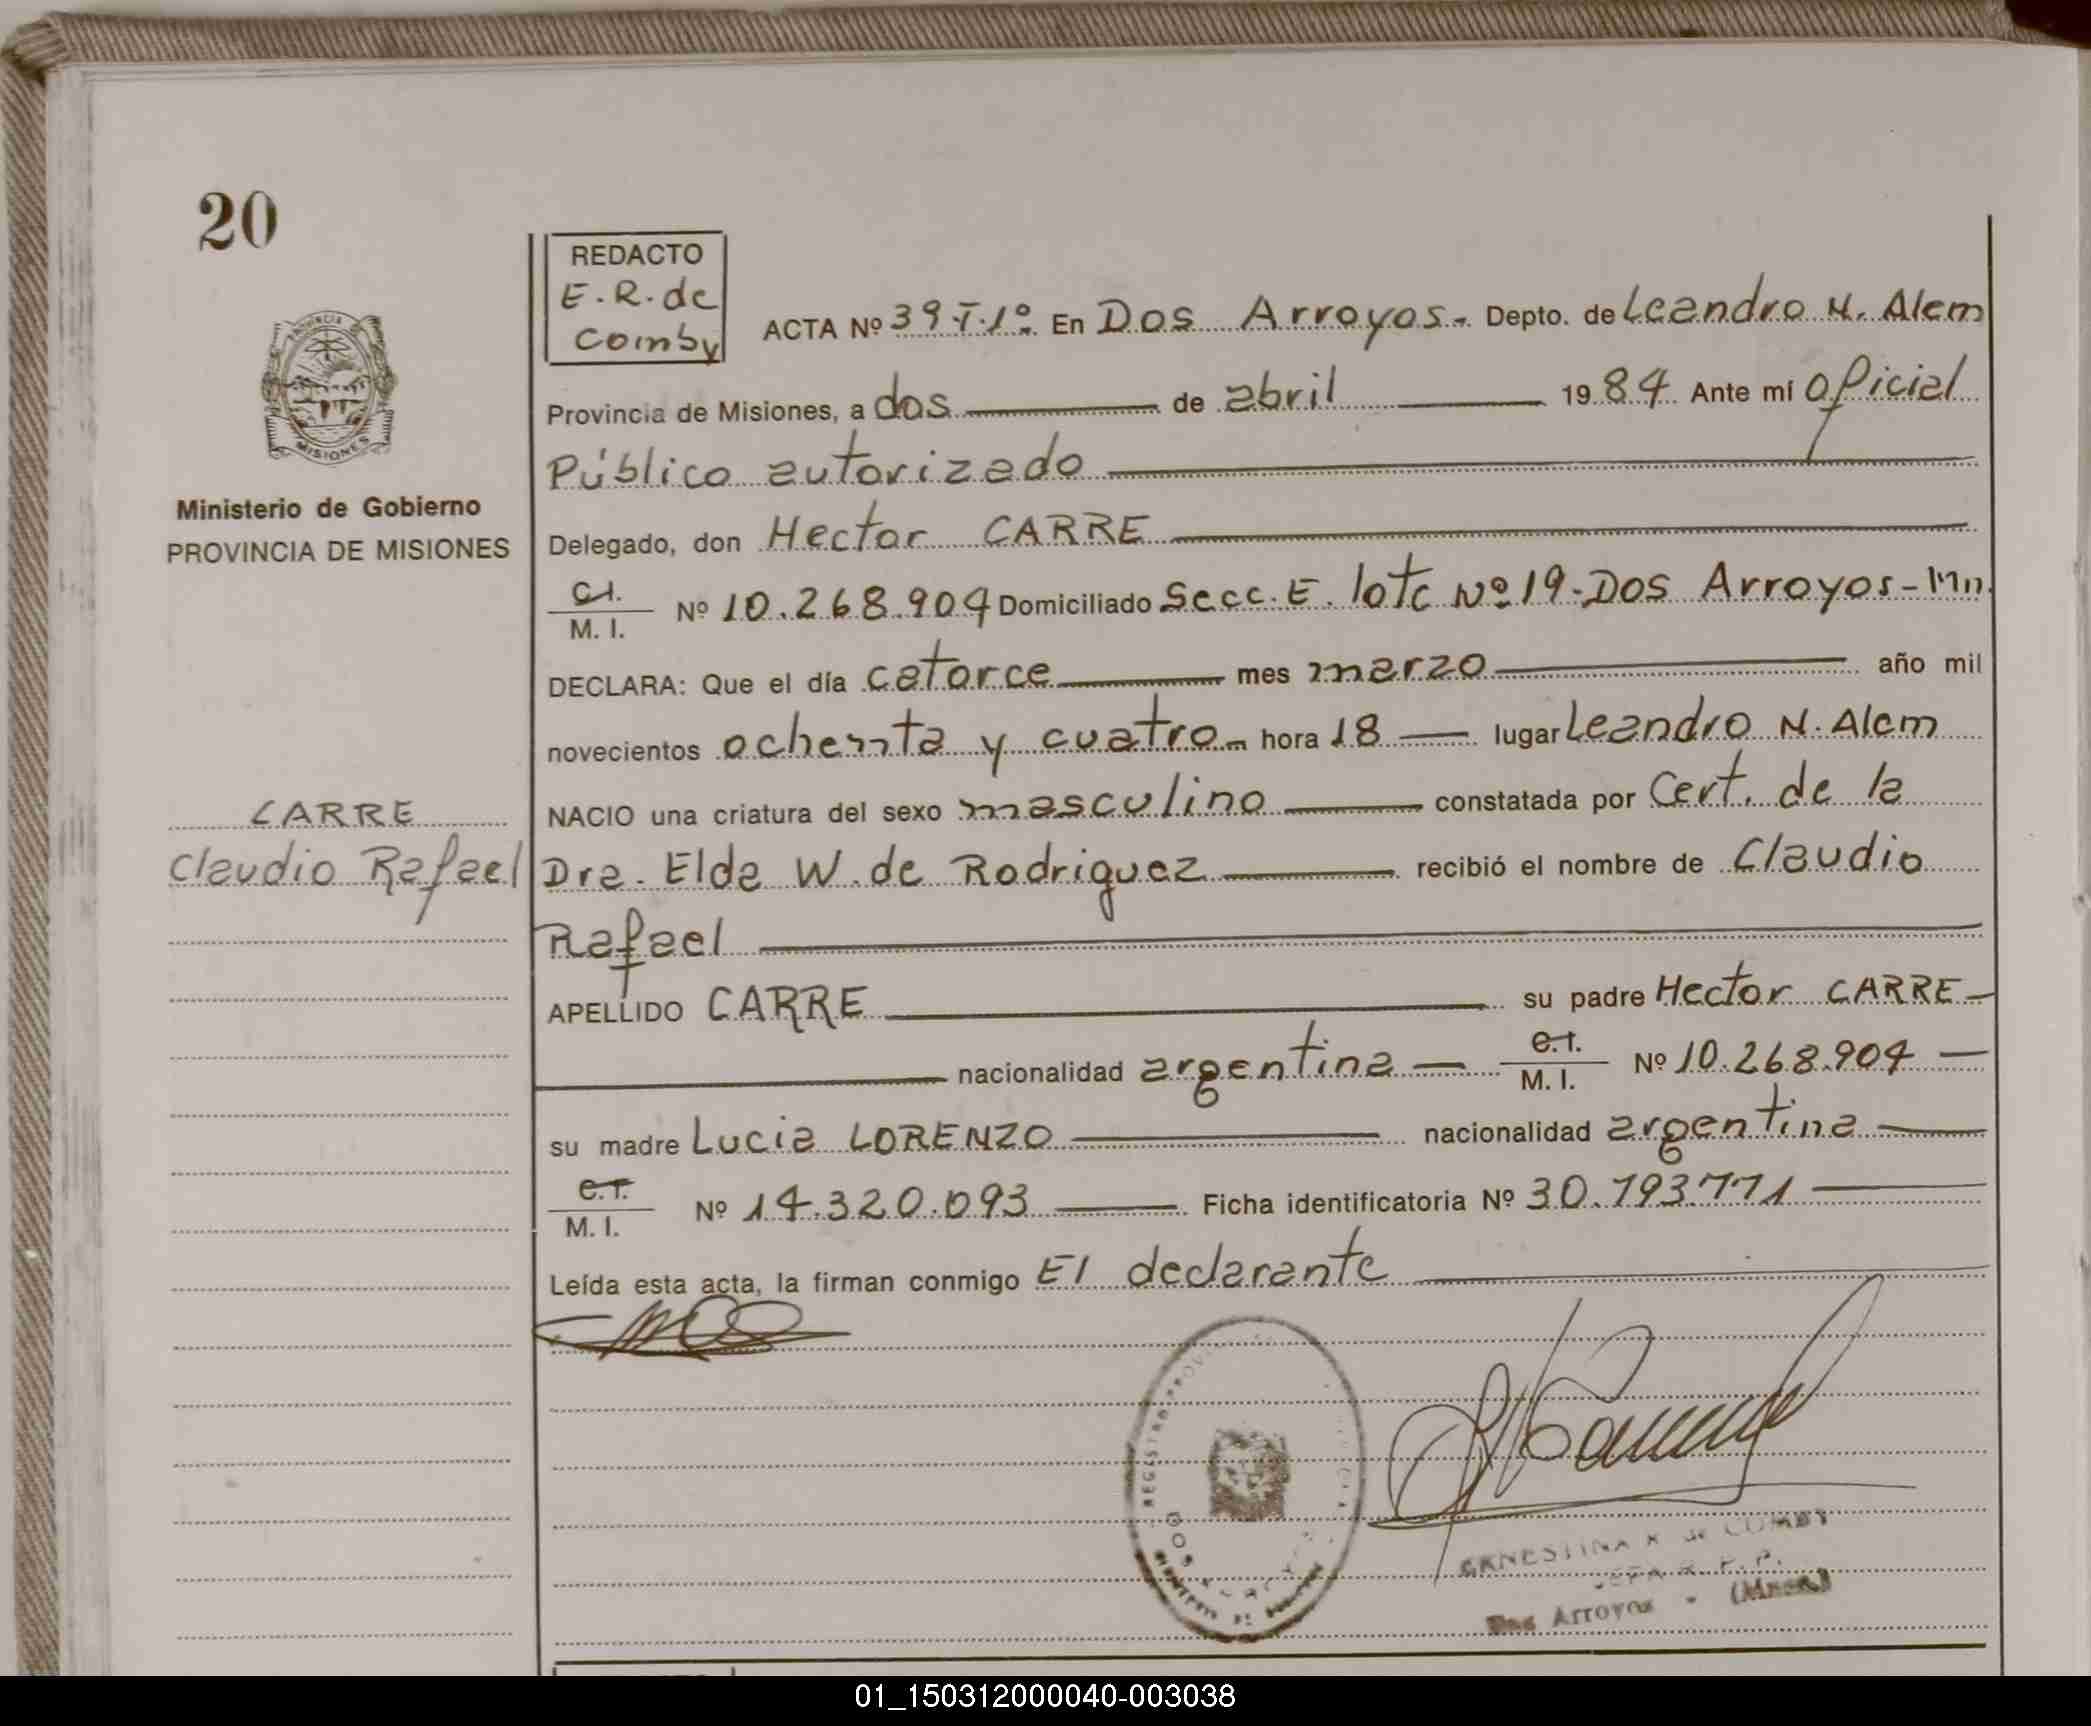 20
REDACTO
E. R. de
Comby
ACTA Nº 39-T-1º En Dos Arroyos- Depto. de Leandro N. Alem
Provincia de Misiones, a dos de abril 1984 Ante mí oficial
Público autorizado
Delegado, don Hector CARRE
C.I.
M. I. Nº 10.268.904 Domiciliado Secc. E. lote Nº 19-Dos Arroyos-Mn.
DECLARA: Que el día catorce mes marzo año mil
novecientos ochenta y cuatro hora 18 lugar Leandro N. Alem
NACIO una criatura del sexo masculino constatada por Cert. de la
Dra. Elda W. de Rodriguez recibió el nombre de Claudio
Rafael
APELLIDO CARRE su padre Hector CARRE
nacionalidad argentina C.I.
M. I. Nº 10.268.904
su madre Lucia LORENZO nacionalidad argentina
C.I.
M. I. Nº 14.320.093 Ficha identificatoria Nº 30.793.771
Leída esta acta, la firman conmigo El declarante
MISIONES
Ministerio de Gobierno
PROVINCIA DE MISIONES
CARRE
Claudio Rafael
ERNESTINA R de COMBY
JEFA R. P. P.
Dos Arroyos - (Mnes.)
01_150312000040-003038